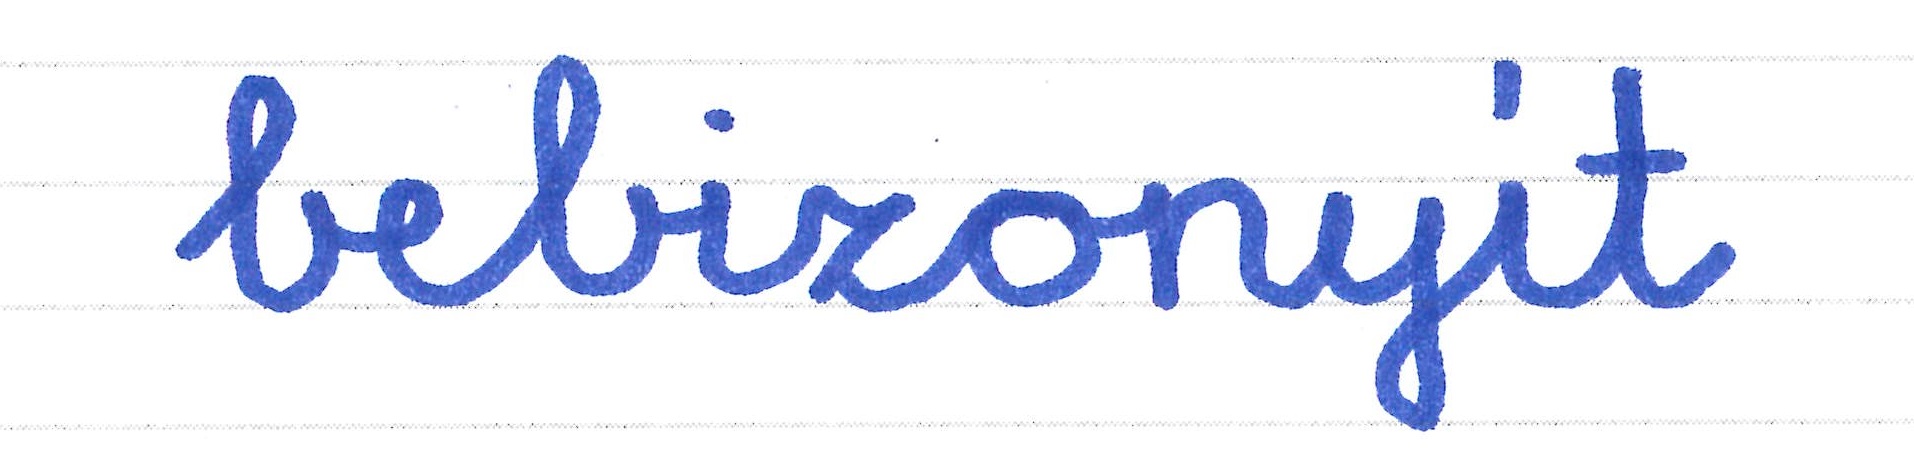 bebizonyít